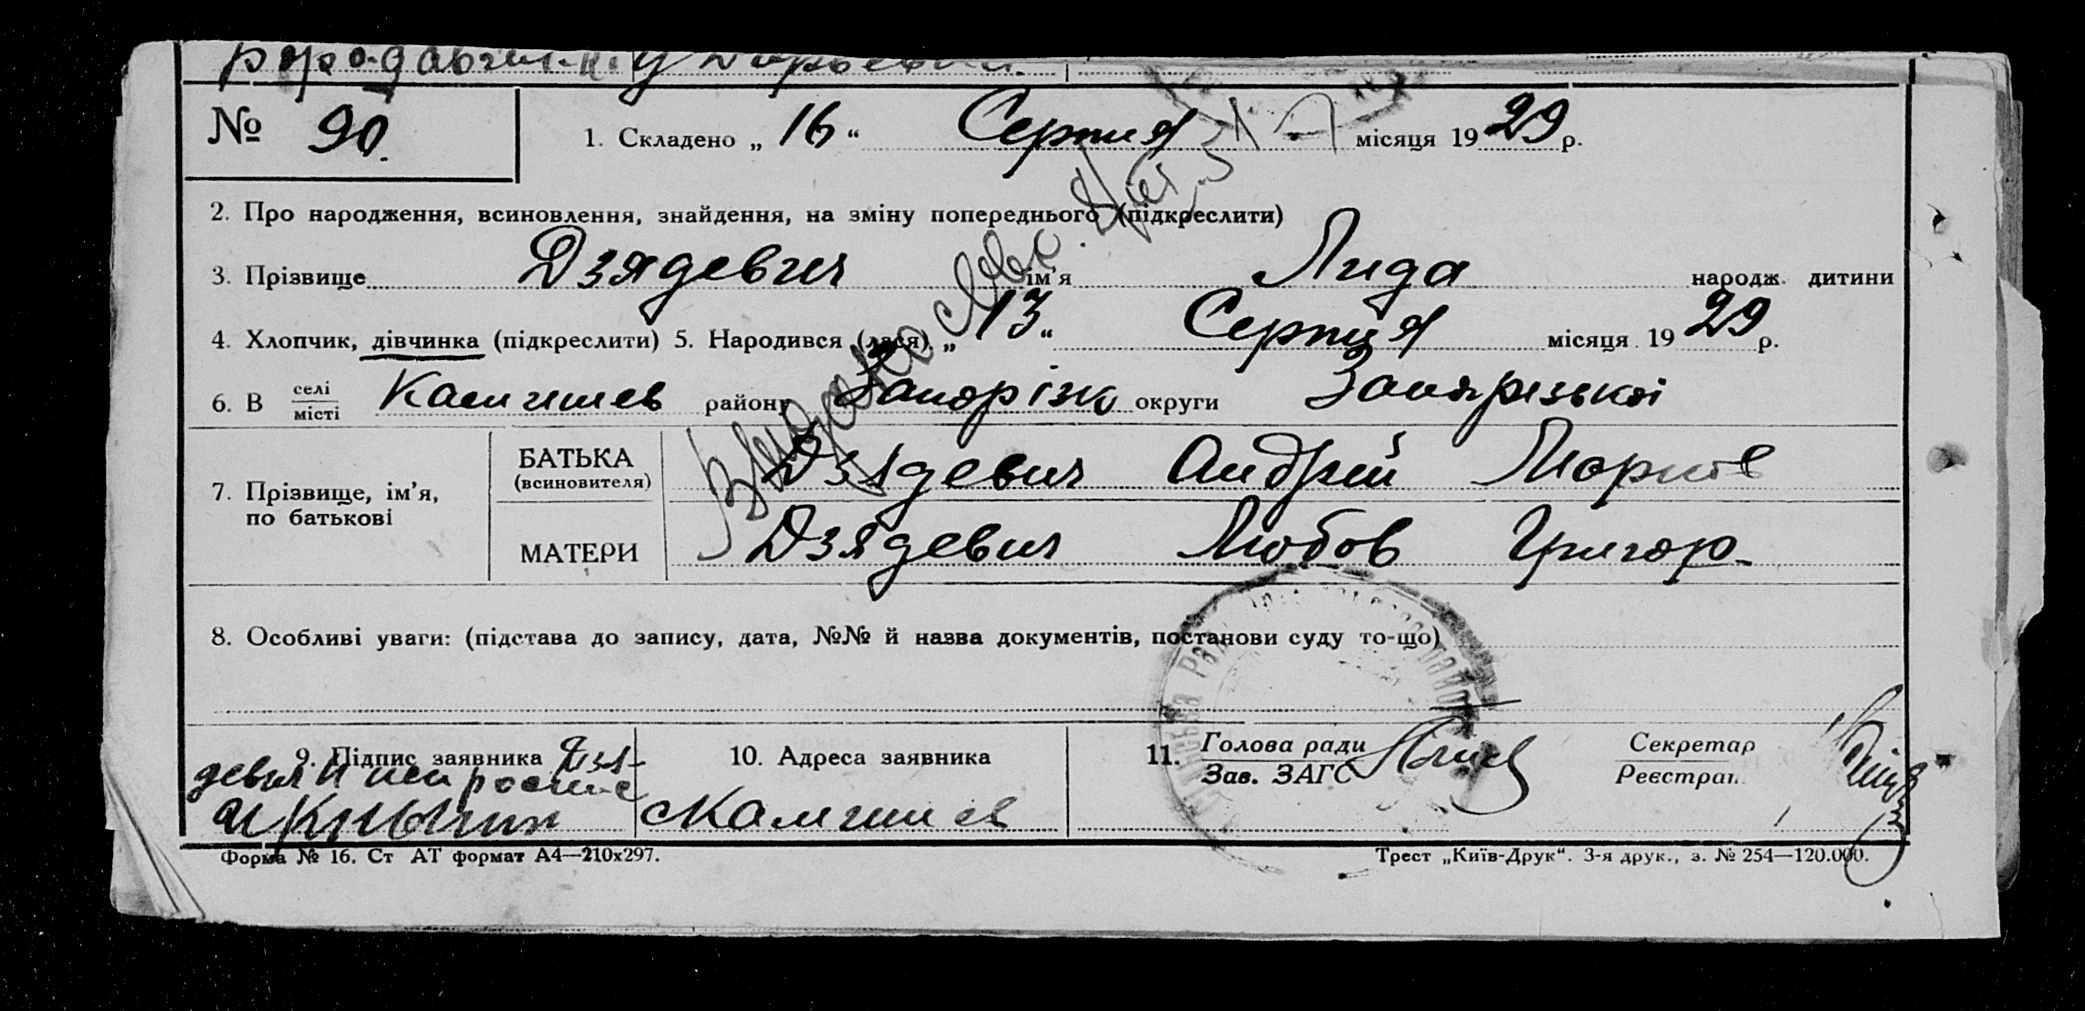 № 90.
1. Складено „ 16 “ Серпня місяця 19 29 р.
2. Про народження, всиновлення, знайдення, на зміну попереднього (підкреслити)
3. Прізвище Дзядевич ім’я Лида народж. дитини
4. Хлопчик, дівчинка (підкреслити) 5. Народився (лася) „ 13 “ Серпня місяця 19 29 р.
6. В селі місті Камишев району Запорізьк округи Запорізькой
7. Прізвище, ім’я, по батькові
БАТЬКА (всиновителя) Дзядевич Андрій
МАТЕРИ Дзядевич Любов Григор.
8. Особливі уваги: (підстава до запису, дата, №№ й назва документів, постанови суду то-що)
9. Підпис заявника Дзя-
девич
10. Адреса заявника
Камишев
11. Голова ради
Зав. ЗАГС
Секретар
Реєстрат.
Форма № 16. Ст АТ формат А4—210х297.
Трест „Київ-Друк“. 3-я друк., з. № 254—120.000.